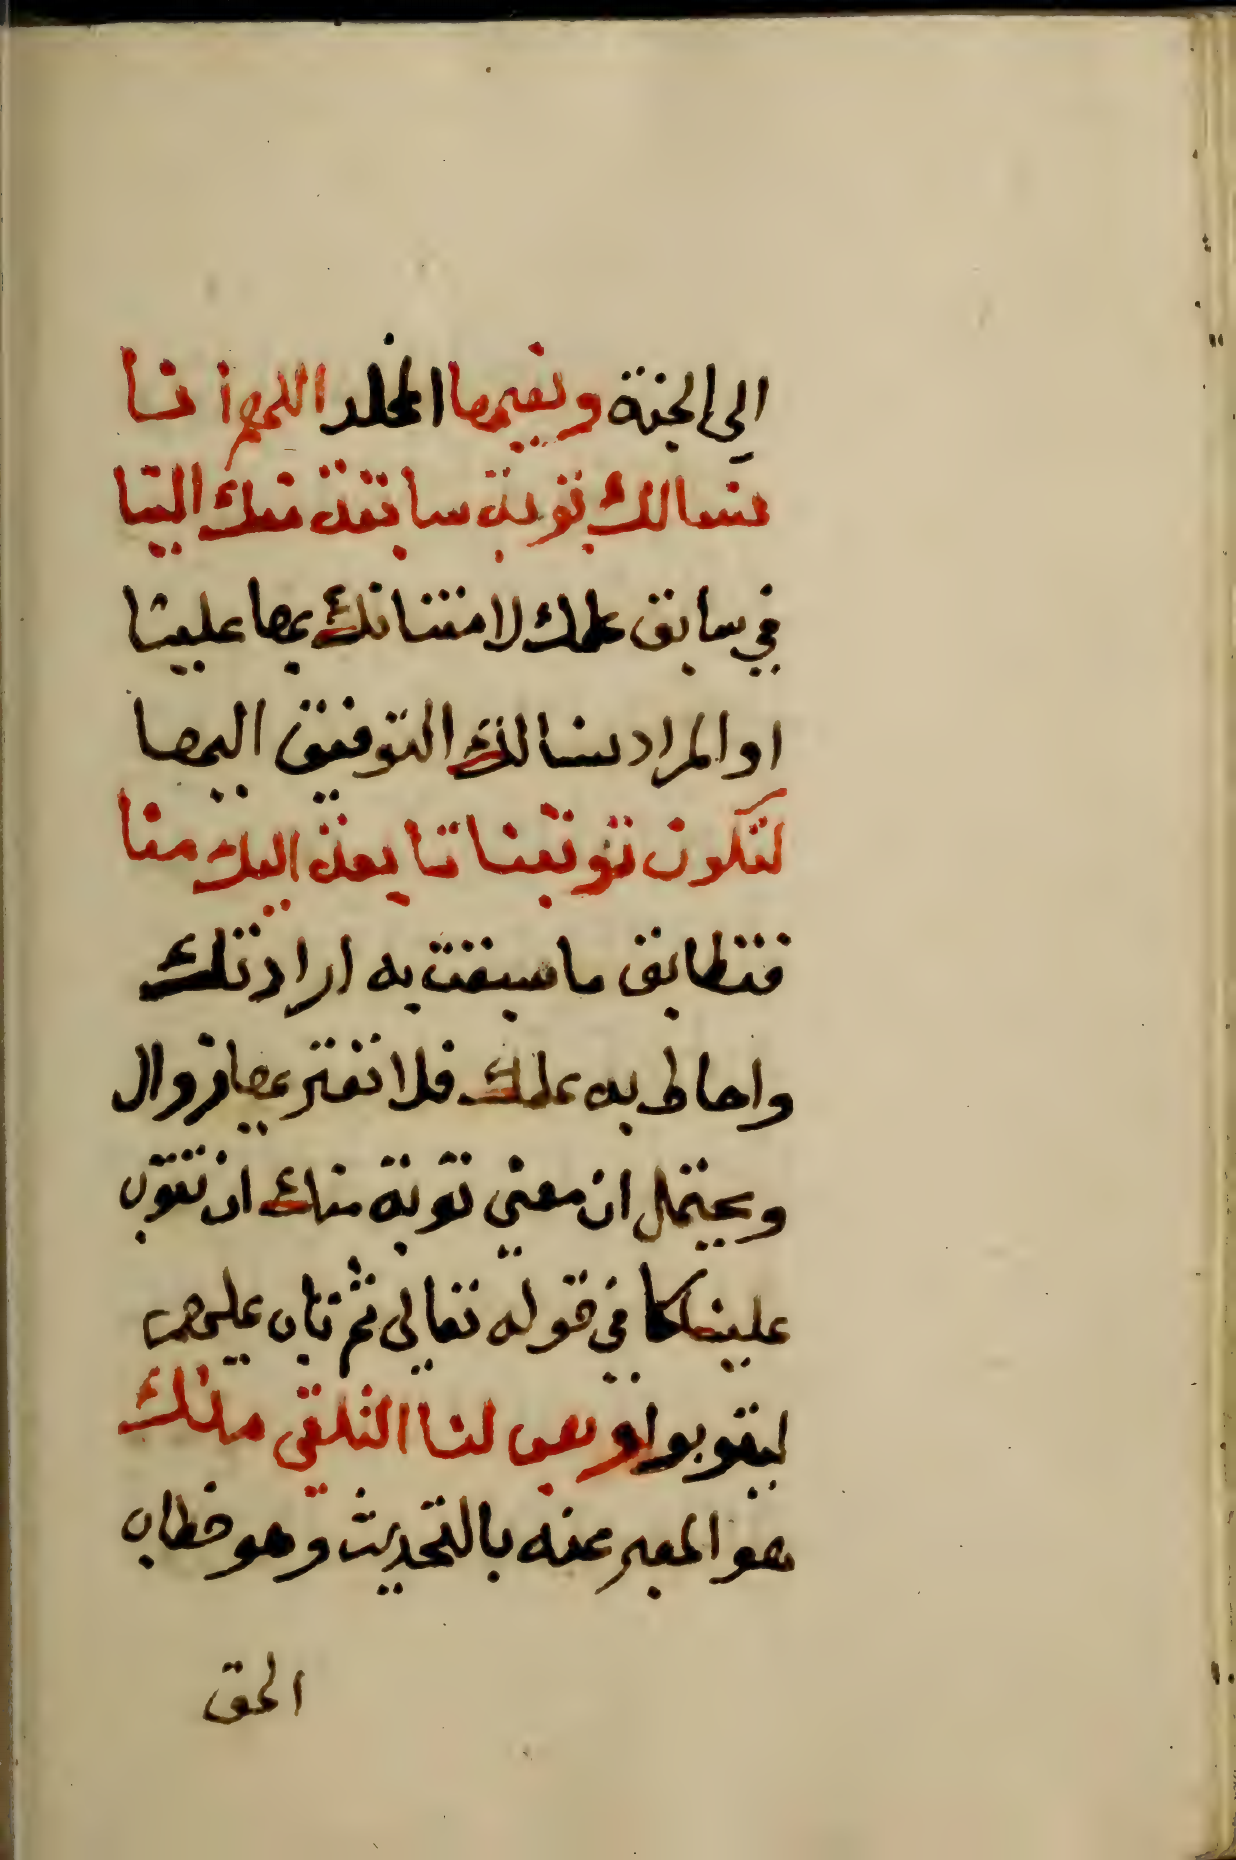 الي الجنة ونعيمها المخلد اللهم انا
نسالك توبة سابقة منك الينا
في سابق علمك لامتنانك بها علينا
او المراد نسالك التوفيق اليها
لتكون توبتنا تابعة اليك منا
فتطابق ما سبقت به ارادتك
واحاط به علمك فلا تعتريها زوال
ويحتمل ان معني توبة منك ان تتوب
علينا كما في قوله تعالي ثم تاب عليهم
ليتوبوا وهب لنا التلقي منك
هو المعبر عنه بالتحديث وهو خطاب
الحق